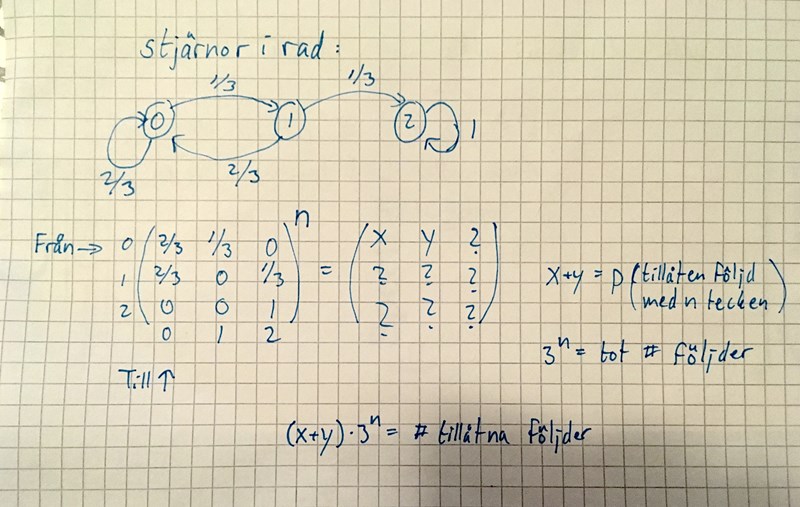 stjärnor i rad:
1/3 1/3
0 1 2 1
2/3 2/3
n
Från → 0 ( 2/3 1/3 0 ) = ( X Y ? )
1 ( 2/3 0 1/3 ) ( ? ? ? )
2 ( 0 0 1 ) ( ? ? ? )
0 1 2
Till ↑
X+y = P (tillåten följd
med n tecken)
3^n = tot # följder
(x+y)·3^n = # tillåtna följder